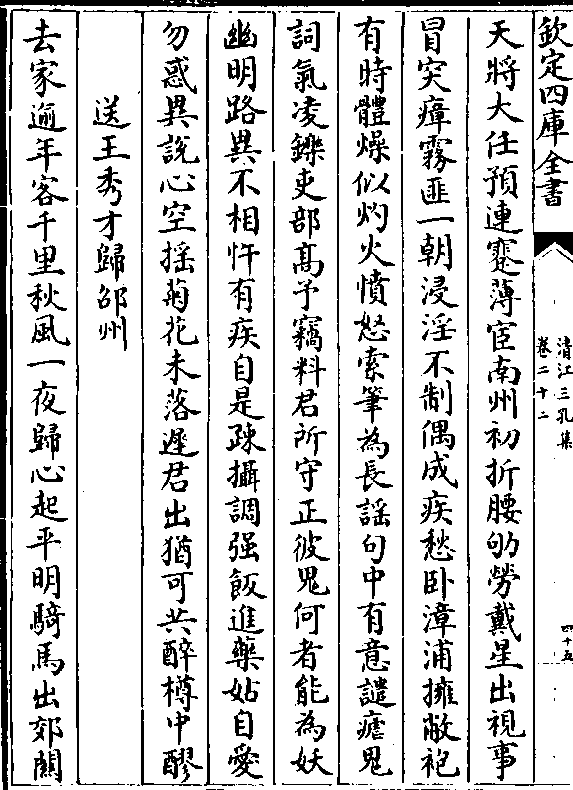 欽定四庫全書
清江三孔集
卷二十二
四十五
天將大任預連蹇薄宦南州初折腰劬勞戴星出視事
冒突瘴霧匪一朝浸淫不制偶成疾愁卧漳浦擁敝袍
有時體燥似灼火憤怒索筆為長謡句中有意譴瘧鬼
詞氣凌鑠吏部髙予竊料君所守正彼鬼何者能為妖
幽明路異不相忤有疾自是疎攝調强飯進藥姑自愛
勿惑異說心空揺菊花未落遲君出猶可共醉樽中醪
送王秀才歸邵州
去家逾年客千里秋風一夜歸心起平明騎馬出郊闗